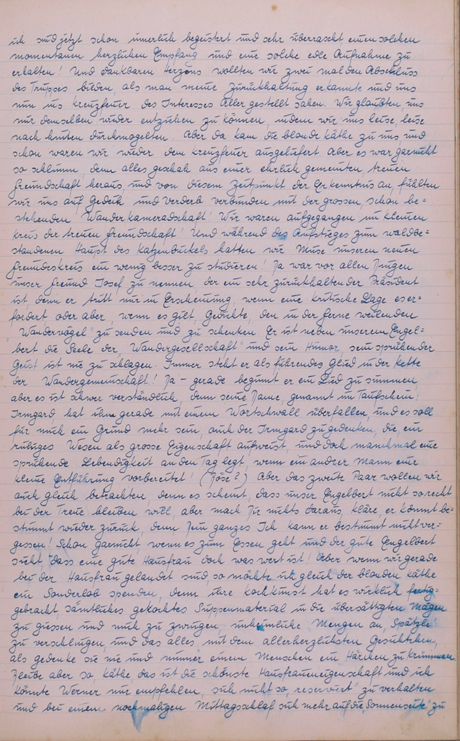 ich sind jetzt schon innerlich begeistert und sehr überrascht einen solchen
momentanen herzlichen Empfang und eine solche edle Aufnahme zu
erhalten! Und dankbaren Herzens wollten wir zwei mal den Abschluss
des Trupps bilden, als man meine Zurückhaltung erkannte und uns
nun ins Kreuzfeuer des Interesses Aller gestellt sahen. Wir glaubten uns
nur demselben wieder entziehen zu können, indem wir uns leise leise
nach hinten durchmogelten. Aber da kam die blonde Käthe zu uns und
schon waren wir wieder dem Kreuzfeuer ausgeliefert. Aber es war garnicht
so schlimm, denn alles geschah aus einer ehrlich gemeinten treuen
Freundschaft heraus, und von diesem Zeitpunkt der Erkenntnis an, fühlten
wir uns auf Gedeih und Verderb verbunden mit der grossen schon be-
stehenden "Wanderkameradschaft"! Wir waren aufgegangen im kleinen
Kreis der treuen Freundschaft! Und während des Aufstieges zum waldbe-
standenen Haupt des Katzenbuckels hatten wir Muse unseren neuen
Freundeskreis ein wenig besser zu studieren! Da war vor allen Dingen
unser Freund Josef zu nennen, der ein sehr zurückhaltender Präsident
ist, denn er tritt nur in Erscheinung, wenn eine kritische Lage es er-
fordert oder aber, wenn es gilt Gedichte den in der Ferne weilenden
"Wandervögel" zu senden und zu schenken. Er ist neben unserem Engel-
bert die Seele der "Wandergesellschaft" und sein Humor, sein sprühender
Geist ist nie zu schlagen. Immer steht er als führendes Glied in der Kette
der Wandergemeinschaft! Ja - gerade beginnt er ein Lied zu summen,
aber es ist schwer verständlich, denn seine Dame, genannt im Taufschein!
Irmgard hat ihn gerade mit einem Wortschwall überfallen, und es soll
für mich ein Grund mehr sein, auch der Irmgard zu gedenken, die ein
ruhiges Wesen als grosse Eigenschaft aufweist, und doch manchmal eine
sprühende Lebendigkeit an den Tag legt, wenn ein andrer Mann eine
kleine Entführung vorbereitet! Aber das zweite Paar wollen wir
auch gleich betrachten, denn es scheint, dass unser Engelbert nicht so recht
bei der Treue bleiben will, aber mach Dir nichts daraus, Kläre, er kommt be-
stimmt wieder zurück, denn sein ganzes Ich kann er bestimmt nicht ver-
gessen! Schon garnicht wenn es zum Essen geht und der gute Engelbert
sieht, dass eine gute Hausfrau doch was wert ist! Aber wenn wir gerade
bei der Hausfrau gelandet sind so möchte ich gleich der blonden Käthe
ein Sonderlob spenden, denn ihre Kochkunst hat es wirklich fertig-
gebracht sämtliches gekochtes Suppenmaterial in die übersättigten Mägen
zu giessen und mich zu zwingen, unheimliche Mengen an Spätzle
zu verschlingen, und das alles mit dem allerherzlichsten Gesichtchen,
als gedenke sie nie und nimmer einem Menschen ein Härchen zu krümmen.
Bleibe aber so Käthe das ist die schönste Hausfraueneigenschaft und ich
könnte Werner nur empfehlen, sich nicht so reserviert zu verhalten
und bei einem nochmaligen Mittagschlaf sich mehr auf die Sonnenseite zu